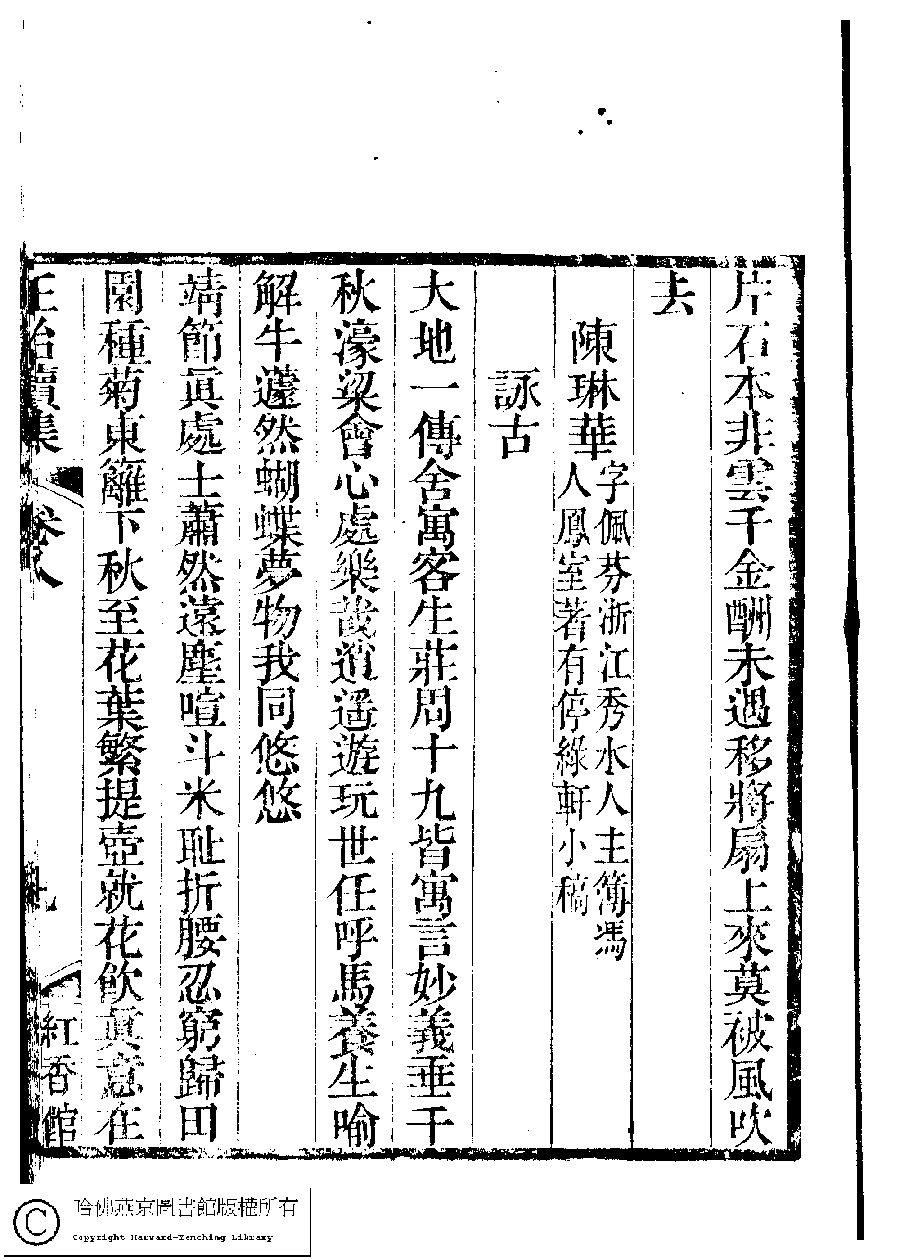 片石本非雲千金酬未遇移將扇上來莫被風吹
去
陳琳華
字佩芬浙江秀水人主簿馮
人鳳室著有停綠軒小稿
詠古
大地一傳舍寓客生莊周十九皆寓言妙義垂千
秋濠梁會心處樂哉逍遥遊玩世任呼馬養生喻
解牛蘧然蝴蝶夢物我同悠悠
靖節眞處士蕭然遠塵喧斗米耻折腰忍窮歸田
園種菊東籬下秋至花葉繁提壺就花飲眞意在
正始續集
卷八
九
紅香館
哈佛燕京圖書館版權所有
Copyright Harvard-Yenching Library